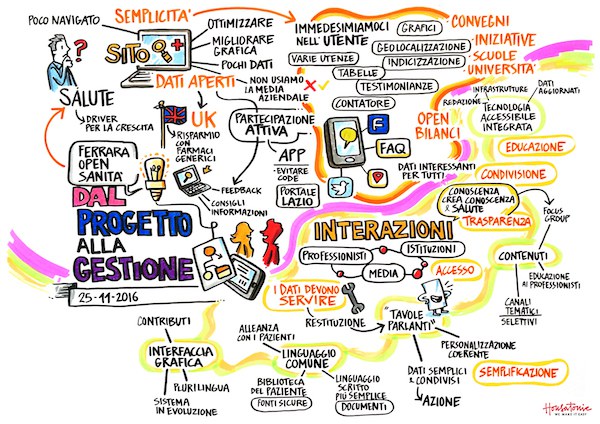 POCO NAVIGATO
SEMPLICITA'
SITO
OTTIMIZZARE
MIGLIORARE
GRAFICA
POCHI DATI
DATI APERTI
NON USIAMO
LA MEDIA
AZIENDALE
?
SALUTE
DRIVER
PER LA CRESCITA
UK
RISPARMIO
CON
FARMACI
GENERICI
PARTECIPAZIONE
ATTIVA
APP
EVITARE
CODE
PORTALE
LAZIO
FEEDBACK
CONSIGLI
INFORMAZIONI
FERRARA
OPEN
SANITÀ
DAL
PROGETTO
ALLA
GESTIONE
25-11-2016
IMMEDESIMIAMOCI
NELL'UTENTE
GRAFICI
GEOLOCALIZZAZIONE
VARIE UTENZE
INDICIZZAZIONE
TABELLE
TESTIMONIANZE
CONTATORE
CONVEGNI
INIZIATIVE
SCUOLE
UNIVERSITA'
F
FAQ
OPEN
BILANCI
DATI INTERESSANTI
PER TUTTI
INFRASTRUTTURE
DATI
AGGIORNATI
REDAZIONE
TECNOLOGIA
ACCESSIBILE
INTEGRATA
EDUCAZIONE
CONDIVISIONE
CONOSCENZA
CREA CONOSCENZA
& SALUTE
TRASPARENZA
FOCUS
GROUP
CONTENUTI
EDUCAZIONE
AI PROFESSIONISTI
CANALI
TEMATICI
SELETTIVI
INTERAZIONI
PROFESSIONISTI
ISTITUZIONI
MEDIA
ACCESSO
I DATI DEVONO
SERVIRE
RESTITUZIONE
"TAVOLE
PARLANTI"
PERSONALIZZAZIONE
COERENTE
DATI SEMPLICI
& CONDIVISI
AZIONE
SEMPLIFICAZIONE
CONTRIBUTI
INTERFACCIA
GRAFICA
PLURILINGUA
SISTEMA
IN EVOLUZIONE
ALLEANZA
CON I PAZIENTI
LINGUAGGIO
COMUNE
BIBLIOTECA
DEL PAZIENTE
FONTI SICURE
LINGUAGGIO
SCRITTO
PIÙ SEMPLICE
DOCUMENTI
Housatonic
WE MAKE IT EASY